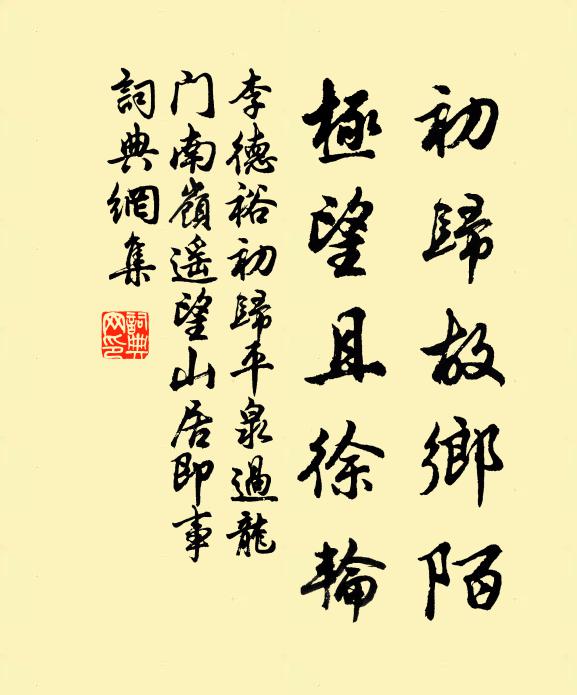 初歸故鄉陌
極望且徐輪
李德裕初歸平泉過龍
门南嶺遥望山居即事
詞典網集
詞典
网印